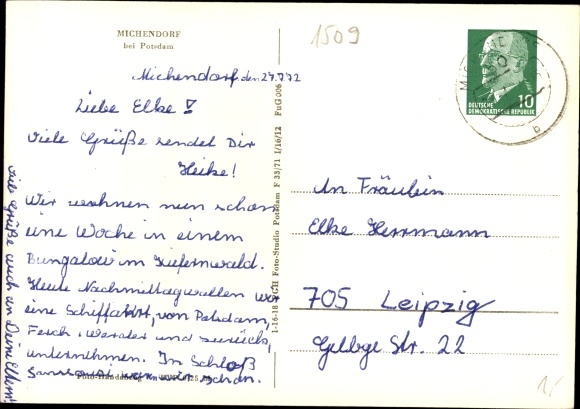 MICHENDORF
bei Potsdam
1509
Michendorf, den 27.7.72
Liebe Elke!
Viele Grüße sendet Dir
Heike!
Wir wohnen nun schon
eine Woche in einem
Bungalow im Kiefernwald.
Heute Nachmittag wollen wir
eine Schiffahrt, von Potsdam,
Ferch, Werder und zurück,
unternehmen. In Schloß
Sanssouci war'n wir schon.
Viele Grüße auch an Deine Eltern!
1-16-18 Foto-Studio Potsdam F 33/71 I/16/12 FuG 006
10
DEUTSCHE
DEMOKRATISCHE REPUBLIK
b
An Fräulein
Elke Herrmann
705 Leipzig
Str. 22
1/